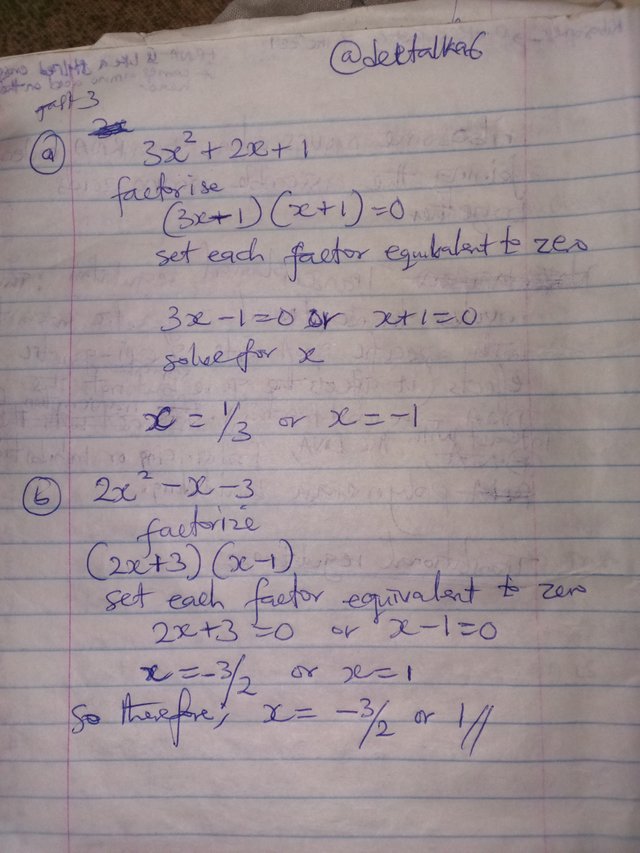 @dektalka6
part 3
2x
a 3x² + 2x + 1
factorise
(3x-1) (x+1) =0
set each factor equivalent to zero
3x-1=0 or x+1=0
solve for x
x = 1/3 or x = -1
b 2x² - x - 3
factorize
(2x+3) (x-1)
set each factor equivalent to zero
2x+3 =0 or x-1=0
x = -3/2 or x = 1
So therefore, x = -3/2 or 1//